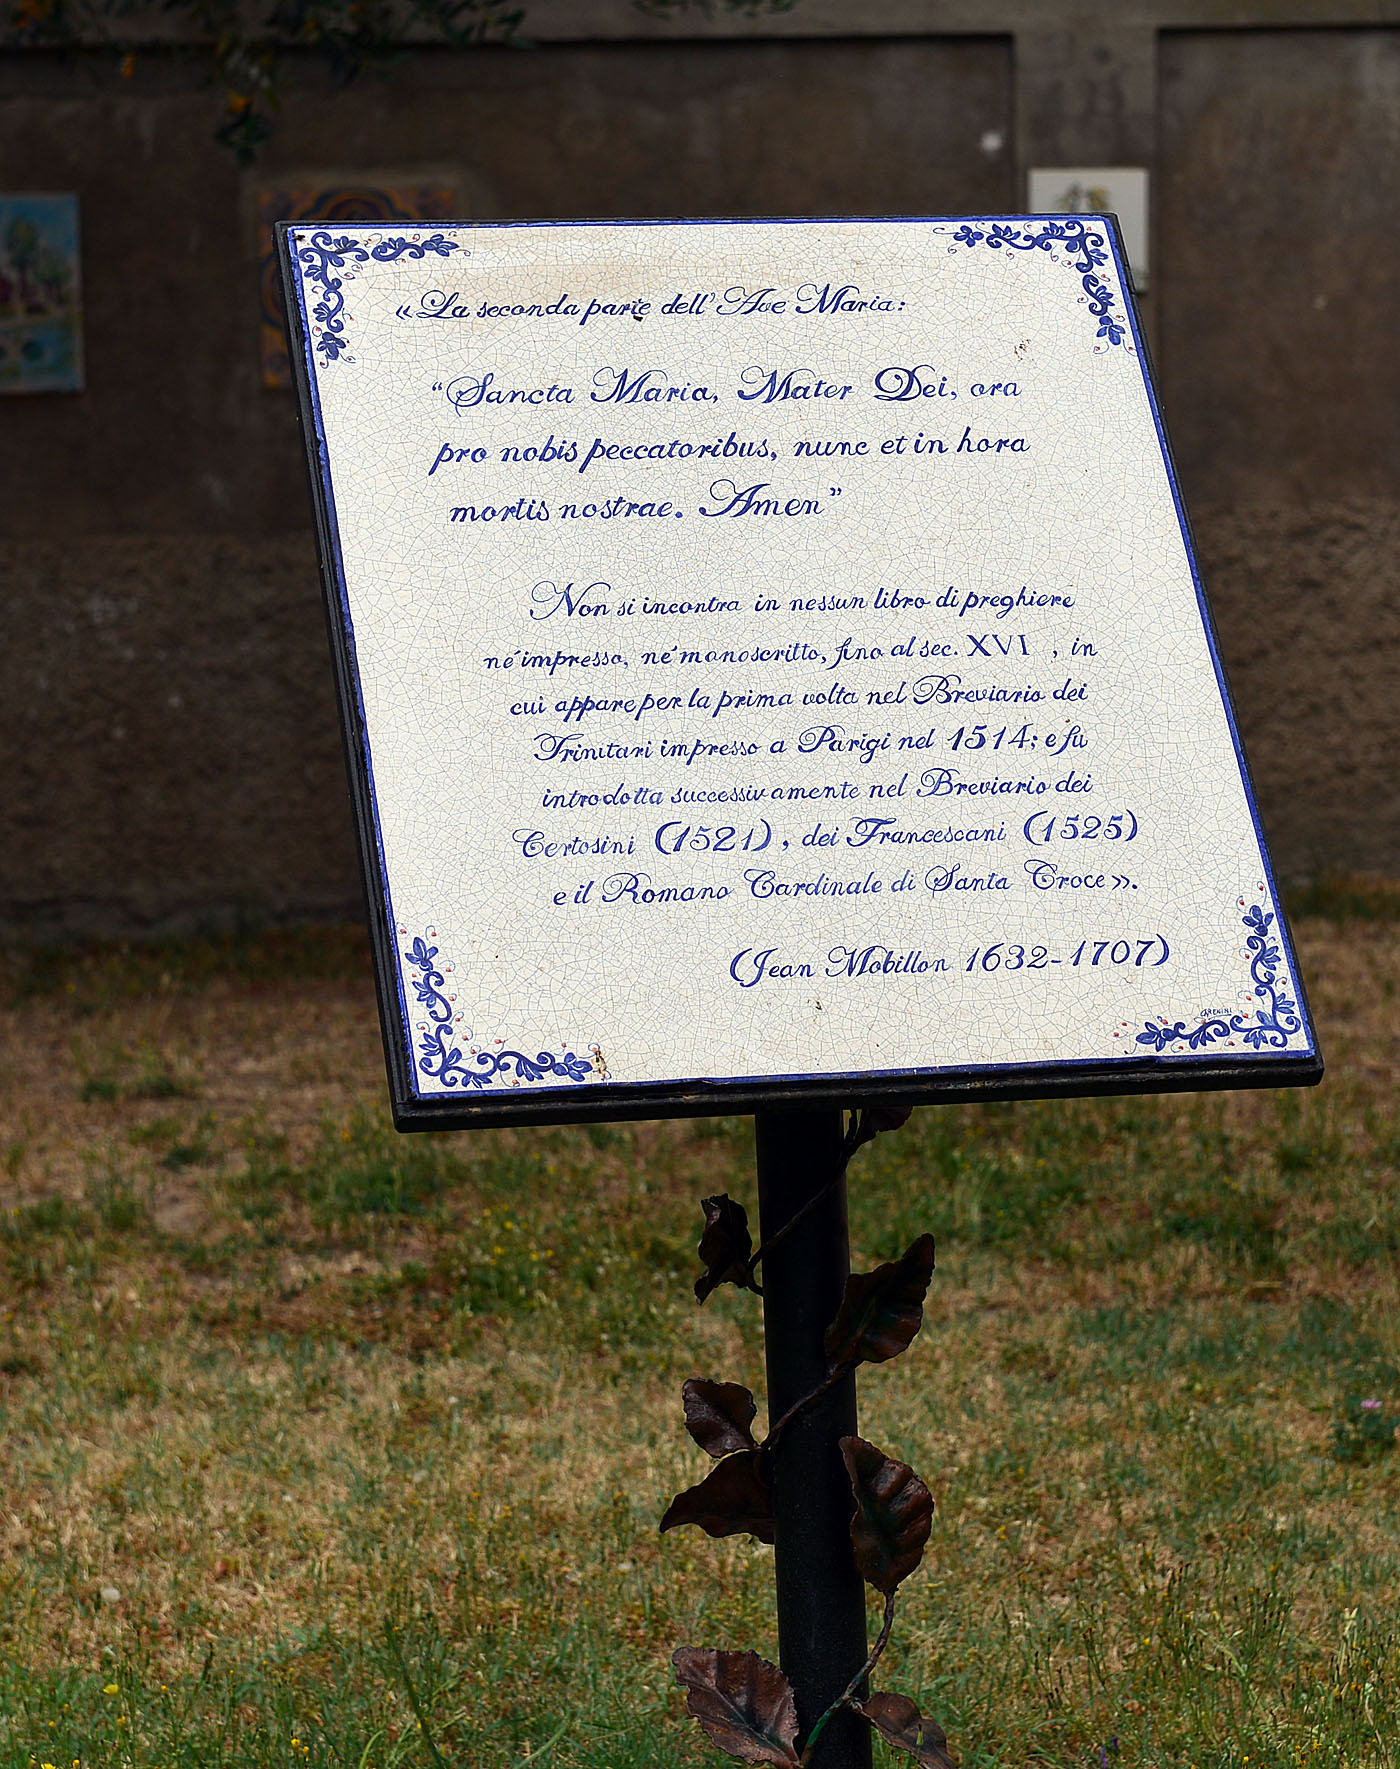 «La seconda parte dell'Ave Maria:
“Sancta Maria, Mater Dei, ora
pro nobis peccatoribus, nunc et in hora
mortis nostrae. Amen”
Non si incontra in nessun libro di preghiere
né impresso, né manoscritto, fino al sec. XVI , in
cui appare per la prima volta nel Breviario dei
Trinitari impresso a Parigi nel 1514; e fu
introdotta successivamente nel Breviario dei
Certosini (1521), dei Francescani (1525)
e il Romano Cardinale di Santa Croce».
(Jean Mobillon 1632-1707)